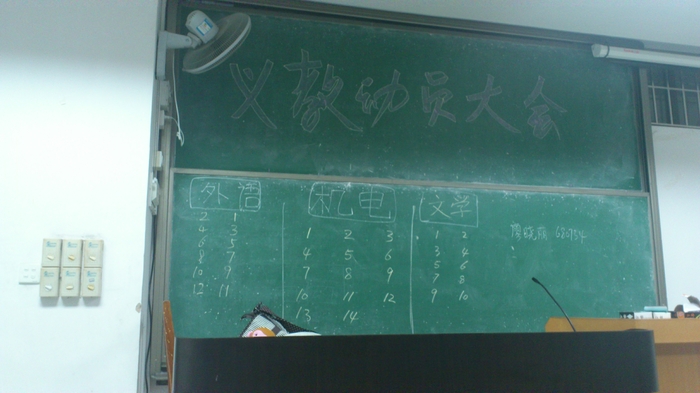 义教动员大会
外语 机电 文学
2 1 1 2 3 1 2
4 3 4 5 6 3 4
6 5 7 8 9 5 6
8 7 10 11 12 7 8
10 9 13 14 9 10
12 11